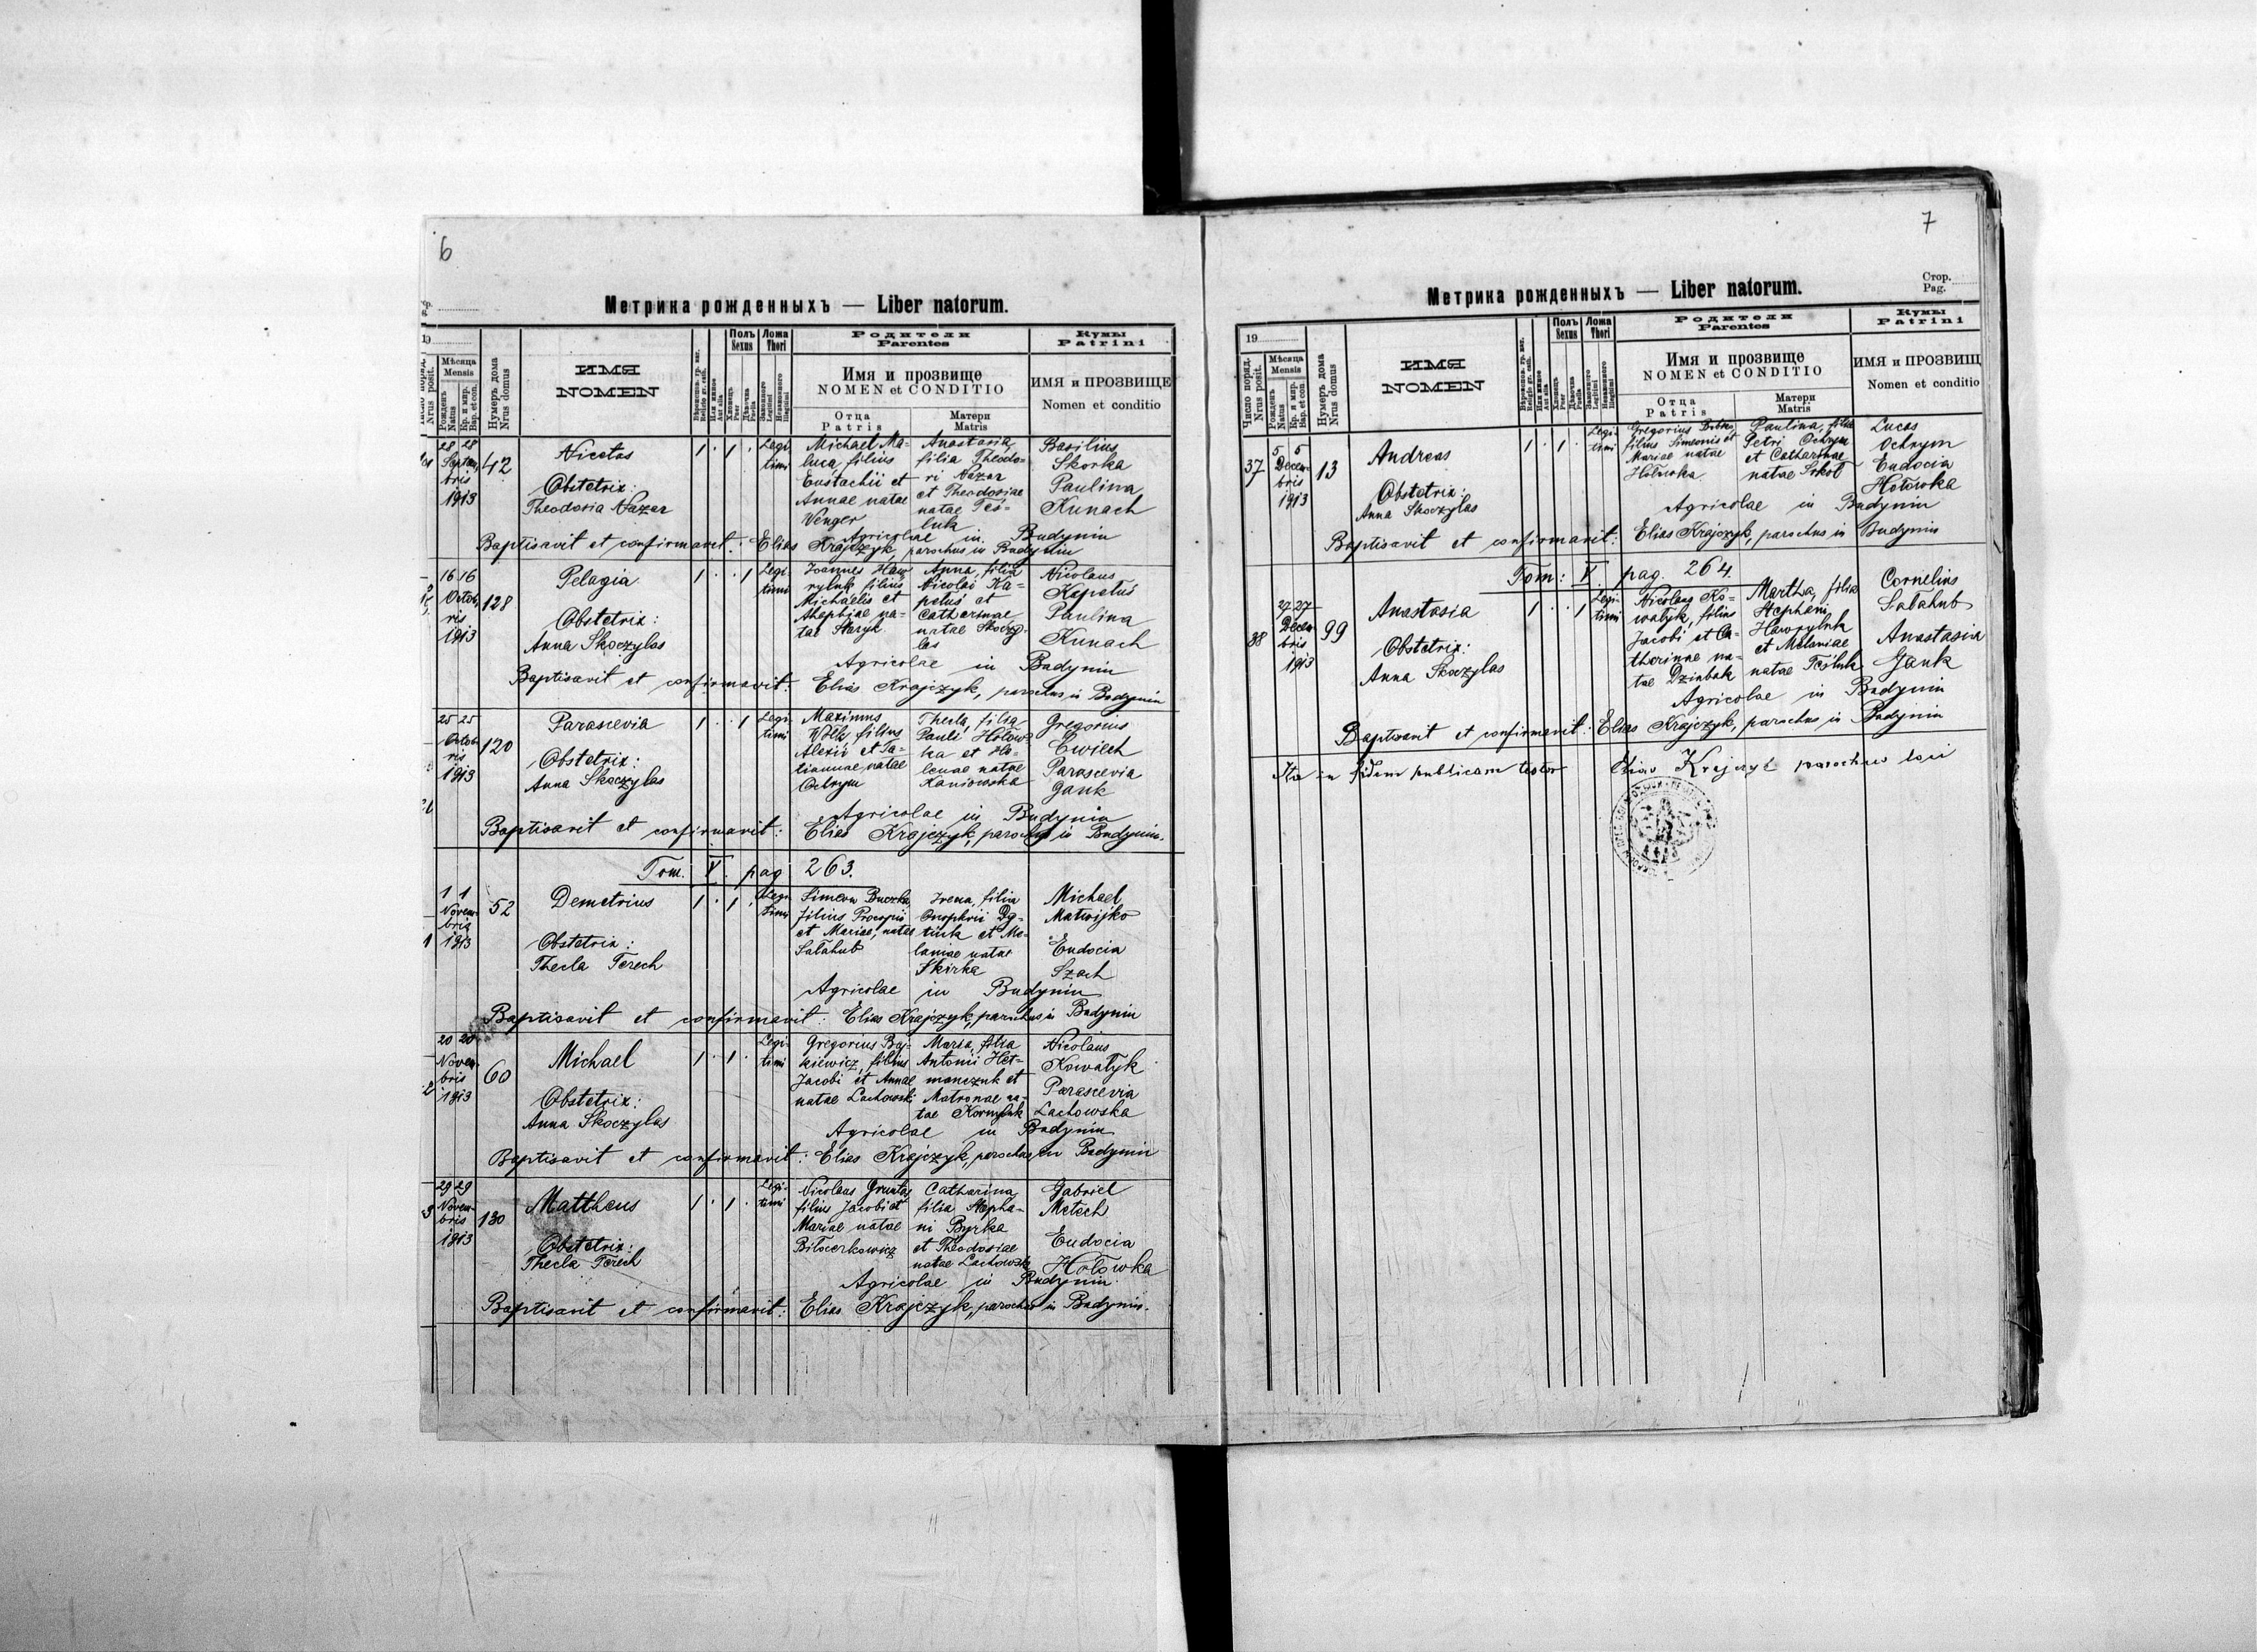 6
Метрика рожденныхъ — Liber natorum.
19
Мѣсяца
Mensis
Рожденъ
Natus
Кр. и мир.
Bap. et con.
Нумеръ дома
Nrus domus
ИМЯ
NOMEN
Полъ
Sexus
Хлопецъ
Puer
Дѣвочка
Puella
Ложа
Thori
Законного
Legitimi
Незаконного
Illegitimi
Родители
Parentes
Имя и прозвище
NOMEN et CONDITIO
Отца
Patris
Матери
Matris
Кумы
Patrini
ИМЯ и ПРОЗВИЩЕ
Nomen et conditio
28 28
Septem
bris
1913
42
Nicetas
Obstetrix:
Theodosia Nazar
1 . 1 .
Legi
timi
Michael Ma-
luca, filius
Eustachii et
Annae natae
Wenger
Anastasia,
filia Theodo-
ri Nazar
et Theodosiae
natae Tes-
luk
Basilius
Skorka
Paulina
Kunach
Agricolae in Budynin
Baptisavit et confirmavit: Elias Krajczyk, parochus in Budynin
16 16
Octob
ris
1913
128
Pelagia
Obstetrix:
Anna Skoczylas
1 . . 1
Legi
timi
Joannes Haw
ryluk, filius
Michaelis et
Agaphiae na-
tae Staryk
Anna, filia
Nicolai Ka-
petuś et
Catharinae
natae Skoczy-
las
Nicolaus
Kapetuś
Paulina
Kunach
Agricolae in Budynin
Baptisavit et confirmavit: Elias Krajczyk, parochus in Budynin
25 25
Octob
ris
1913
120
Parascevia
Obstetrix:
Anna Skoczylas
1 . . 1
Legi
timi
Maximus
Wołk filius
Alexii et Ta-
tiannae natae
Ochrym
Thecla, filia
Pauli Hołow-
ka et He-
lenae natae
Kaniowska
Gregorius
Ćwiech
Parascevia
Gauk
Agricolae in Budynin
Baptisavit et confirmavit: Elias Krajczyk, parochus in Budynin.
Tom. V. pag 263.
1 1
Novem
bris
1913
52
Demetrius
Obstetrix:
Thecla Terech
1 . 1 .
Legi
timi
Simeon Buczko,
filius Procopii
et Mariae, natae
Sałahub
Irena, filia
Onophrii
et Me-
laniae natae
Skirka
Michael
Matwijko
Eudocia
Szach
Agricolae in Budynin
Baptisavit et confirmavit: Elias Krajczyk, parochus in Budynin
20 20
Novem
bris
1913
60
Michael
Obstetrix:
Anna Skoczylas
1 . 1 .
Legi-
timi
Gregorius Baj-
kiewicz, filius
Jacobi et Annae
natae Lachowski
Maria, filia
Antonii Het-
manczuk et
Matronae na-
tae Kornyluk
Nicolaus
Kowałyk
Parascevia
Lachowska
Agricolae in Budynin
Baptisavit et confirmavit: Elias Krajczyk, parochus in Budynin
29 29
Novem
bris
1913
130
Mattheus
Obstetrix:
Thecla Terech
1 . 1 .
Legi-
timi
Nicolaus Gruntas
filius Jacobi et
Mariae natae
Biłocerkowicz
Catharina,
filia Stepha-
ni Byrka
et Theodosiae
natae Lachowska
Gabriel
Metech
Eudocia
Hołowka
Agricolae in Budynin
Baptisavit et confirmavit: Elias Krajczyk, parochus in Budynin.
7
Стор.
Pag.
Метрика рожденныхъ — Liber natorum.
19
Число поряд.
Nrus posit.
Мѣсяца
Mensis
Рожденъ
Natus
Кр. и мир.
Bap. et con.
Нумеръ дома
Nrus domus
ИМЯ
NOMEN
Полъ
Sexus
Хлопецъ
Puer
Дѣвочка
Puella
Ложа
Thori
Законного
Legitimi
Незаконного
Illegitimi
Родители
Parentes
Имя и прозвище
NOMEN et CONDITIO
Отца
Patris
Матери
Matris
Кумы
Patrini
ИМЯ и ПРОЗВИЩ
Nomen et conditio
37
5 5
Decem-
bris
1913
13
Andreas
Obstetrix:
Anna Skoczylas
1 . 1 .
Legi-
timi
Gregorius
filius Simeonis et
Mariae natae
Hołowka
Paulina, filia
Petri Ochrym
et Catharinae
natae Sokoł
Lucas
Ochrym
Eudocia
Hołowka
Agricolae in Budynin
Baptisavit et confirmavit: Elias Krajczyk, parochus in Budynin
Tom: V. pag. 264.
38
27 27
Decem
bris
1913
99
Anastasia
Obstetrix:
Anna Skoczylas
1 . . 1
Legi-
timi
Nicolaus Ko-
wałyk, filius
Jacobi et Ca-
tharinae na-
tae Dziubak
Martha, filia
Stephani
Hawryluk
et Melaniae
natae Tesluk
Cornelius
Sałahub
Anastasia
Gauk
Agricolae in Budynin
Baptisavit et confirmavit: Elias Krajczyk, parochus in Budynin
Ita in fidem publicam testor Elias Krajczyk parochus loci